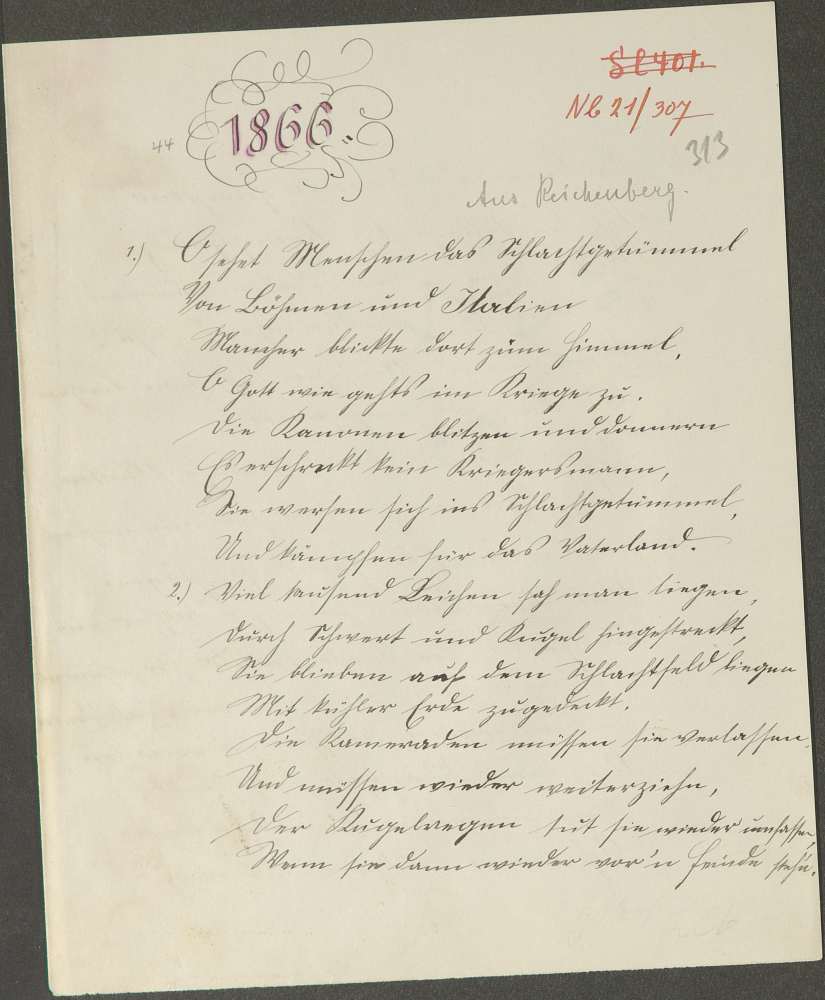 Sl 401.
Nl 21/307
313
44
1866.
Aus Reichenberg.
1.) O sehet Menschen das Schlachtgetümmel
Von Böhmen und Italien
Mancher blickte dort zum Himmel,
O Gott wie gehts im Kriege zu.
Die Kanonen blitzen und donnern
Es erschreckt kein Kriegersmann,
Sie werfen sich ins Schlachtgetümmel,
Und kämpfen für das Vaterland.
2.) Viel tausend Leichen sah man liegen,
Durch Schwert und Kugel hingestreckt,
Sie blieben auf dem Schlachtfeld liegen
Mit kühler Erde zugedeckt.
Die Kameraden müssen sie verlassen,
Und müssen wieder weiterziehn,
Der Kugelregen tut sie wieder umfassen,
Wenn sie dann wieder vor'n Feinde stehn.